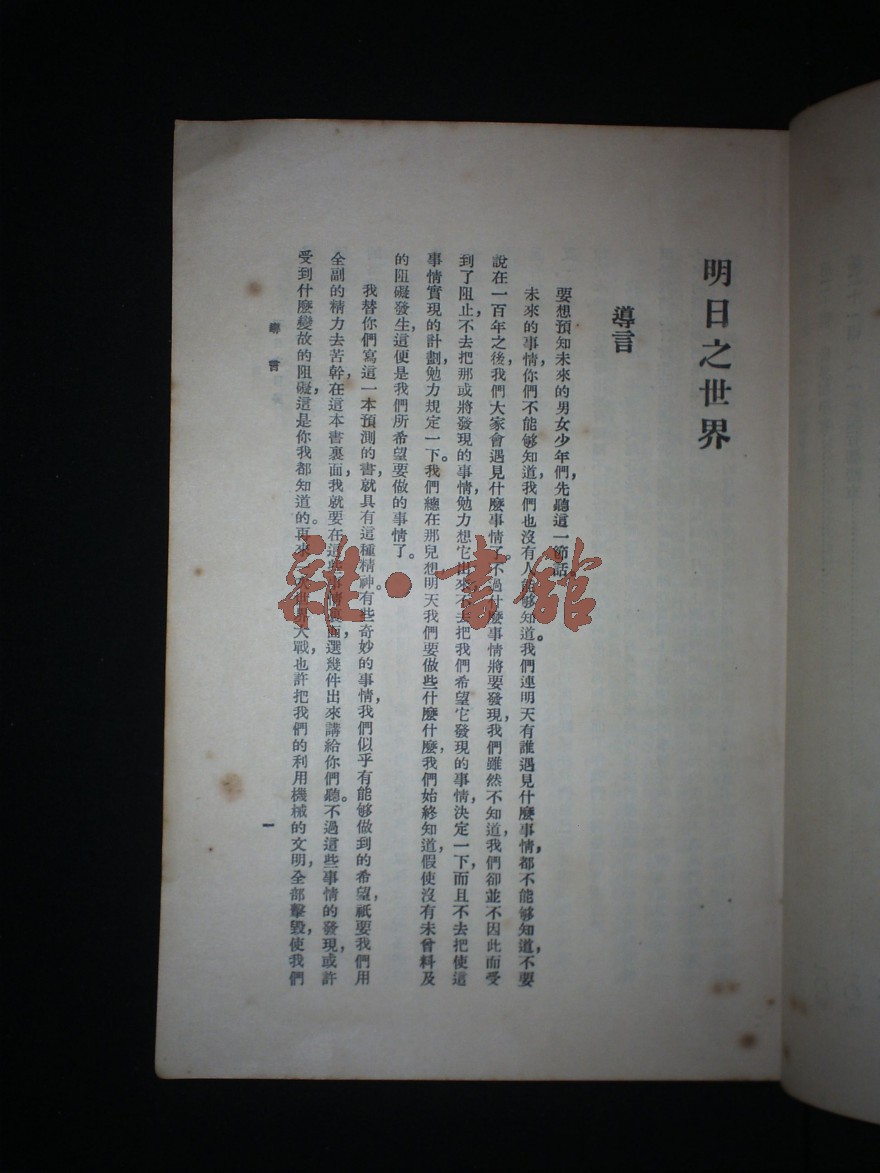 明日之世界
導言
要想預知未來的男女少年們，先聽這一節話。
未來的事情，你們不能够知道，我們也沒有人能够知道。我們連明天有誰遇見什麼事情，都不能够知道，不要
說在一百年之後，我們大家會遇見什麼事情了。不過什麼事情將要發現，我們雖然不知道，我們卻並不因此而受
到了阻止，不去把那或將發現的事情，勉力想它出來，不去把我們希望它發現的事情，決定一下，而且不去把使這
事情實現的計劃，勉力規定一下。我們總在那兒想明天我們要做些什麼什麼，我們始終知道，假使沒有未曾料及
的阻礙發生，這便是我們所希望要做的事情了。
我替你們寫這一本預測的書，就具有這種精神。有些奇妙的事情，我們似乎有能够做到的希望，祇要我們用
全副的精力去苦幹，在這本書裏面，我就要在這些事情裏面，選幾件出來講給你們聽。不過這些事情的發現，或許
受到什麼變故的阻礙，這是你我都知道的。再來一次世界大戰，也許把我們的利用機械的文明，全部擊毀，使我們
導言
一
雜·書館